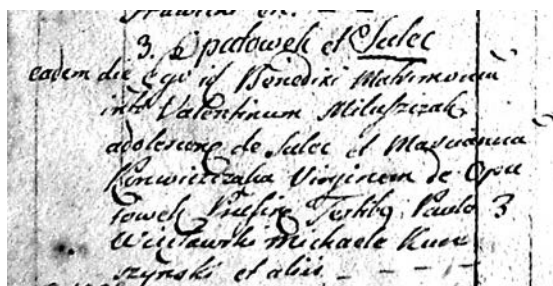 3. Opatowek et Sulec
eadem die Ego id Benedixi Matrimonium
inter Valentinum Miluszczak
adolescens de Sulec et Mariannam
Virginem de Opa
towek Pntibg Testibg Paulo 3
Więcławski Michaele Kur
szynski et aliis - - -